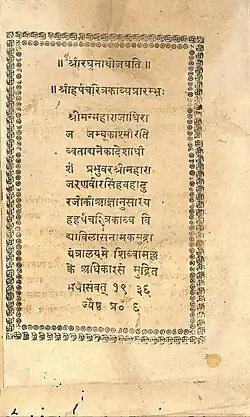 ॥ श्रीरघुनाथोजयति ॥
॥ श्रीहर्षचरित्रकाव्यप्रारम्भः
श्रीमन्महाराजाधिरा
ज जम्बूकाश्मीरति
ब्बताद्यनेकादेशाधी
श प्रभुवरश्रीमहारा
जरणवीरसिंहबहादु
रजीकीआज्ञानुसारय
हहर्षचरित्रकाव्य वि
द्याविलासनामकमुद्रा
यंत्रालयमें शिब्बामल्ल
के अधिकारसे मुद्रित
भयासंवत् १९ ३६
ज्यैष्ठ प्र० ६